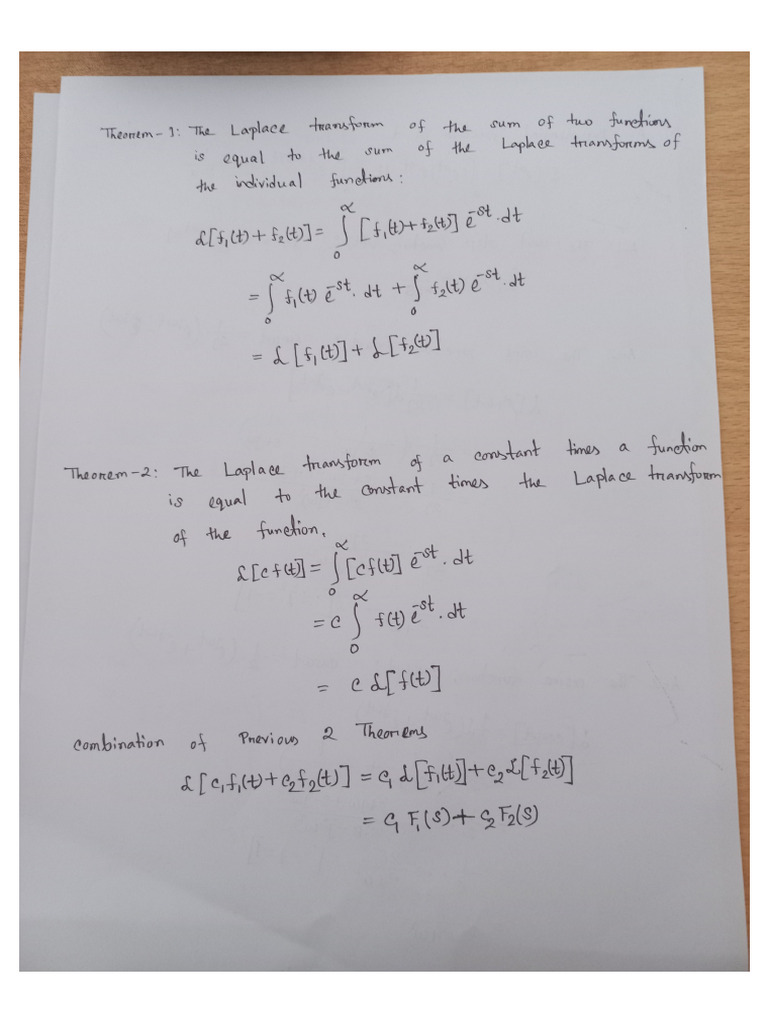 Theorem-1: The Laplace transform of the sum of two functions
is equal to the sum of the Laplace transforms of
the individual functions:
ℒ[f₁(t) + f₂(t)] = ∫₀^∝ [f₁(t) + f₂(t)] e^{-st}.dt
= ∫₀^∝ f₁(t) e^{-st}. dt + ∫₀^∝ f₂(t) e^{-st}.dt
= ℒ[f₁(t)] + ℒ[f₂(t)]
Theorem-2: The Laplace transform of a constant times a function
is equal to the constant times the Laplace transform
of the function.
ℒ[cf(t)] = ∫₀^∝ [cf(t)] e^{-st}. dt
= c ∫₀^∝ f(t) e^{-st}. dt
= c ℒ[f(t)]
Combination of Previous 2 Theorems
ℒ[c₁f₁(t) + c₂f₂(t)] = c₁ ℒ[f₁(t)] + c₂ ℒ[f₂(t)]
= c₁ F₁(s) + c₂ F₂(s)